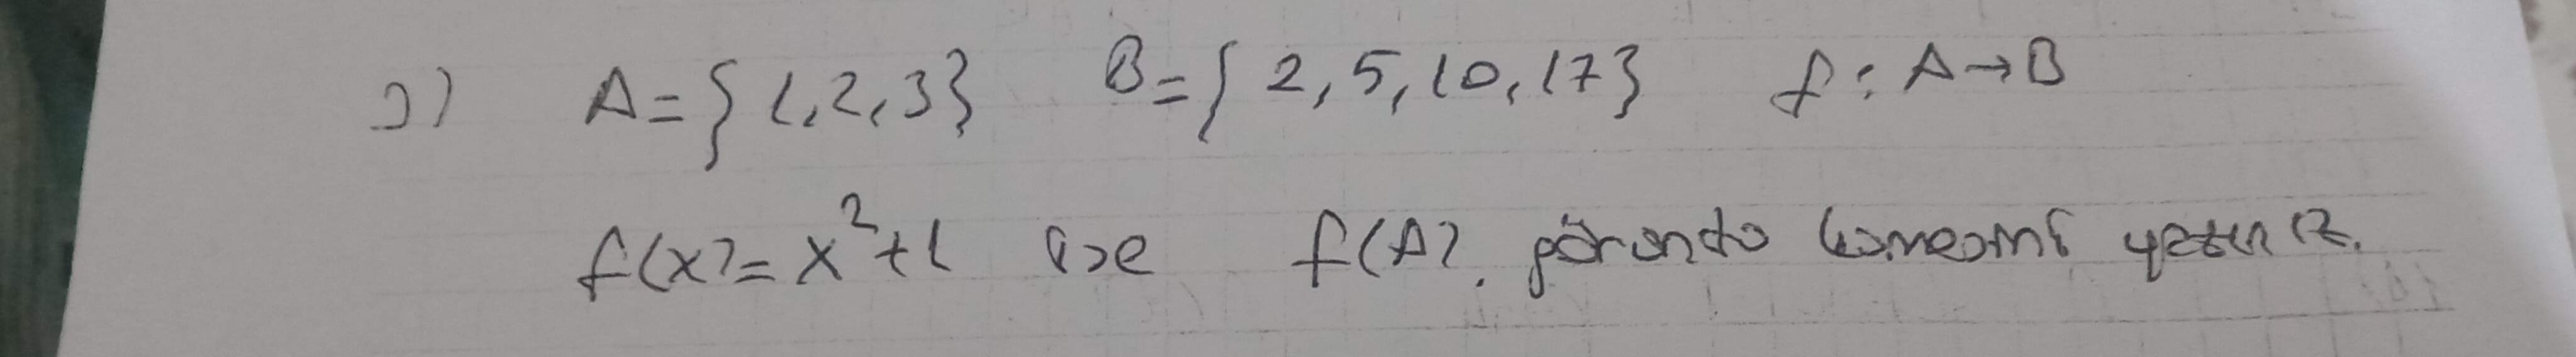 2) A={1,2,3} B={2,5,10,17} f: A→B
f(x)=x²+1 ise f(A). görüntü kümesini yazınız.